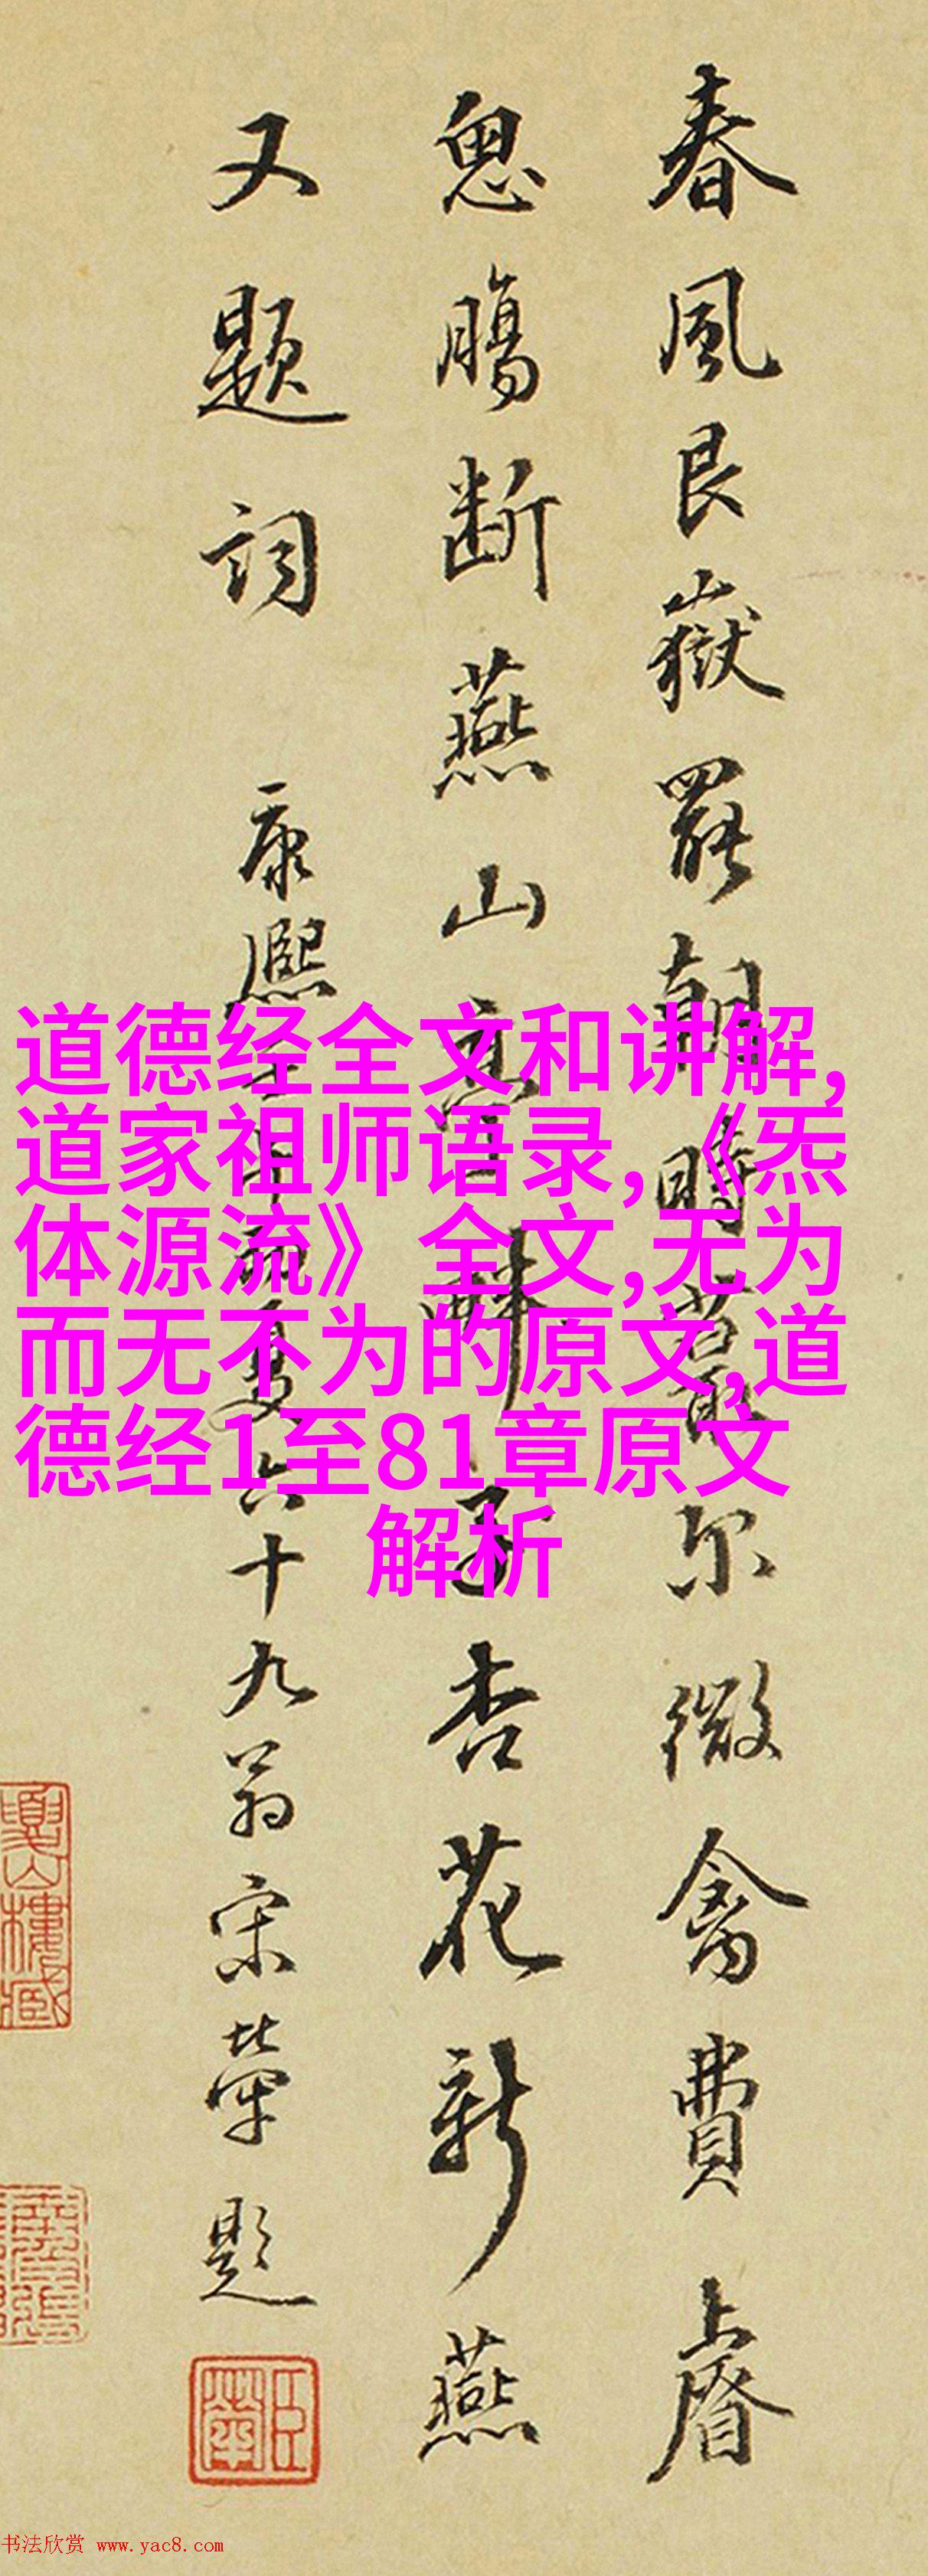 春風艮嶽罷朝時 尔微禽費上眷
忽腸断燕山 杏花新燕
又題詞 康熙 六十九翁宋犖題
道德经全文和讲解,
道家祖师语录,《炁
体源流》 全文,无为
而无不为的原文,道
德经1至81章原文
解析
书法欣赏 www.yac8.com